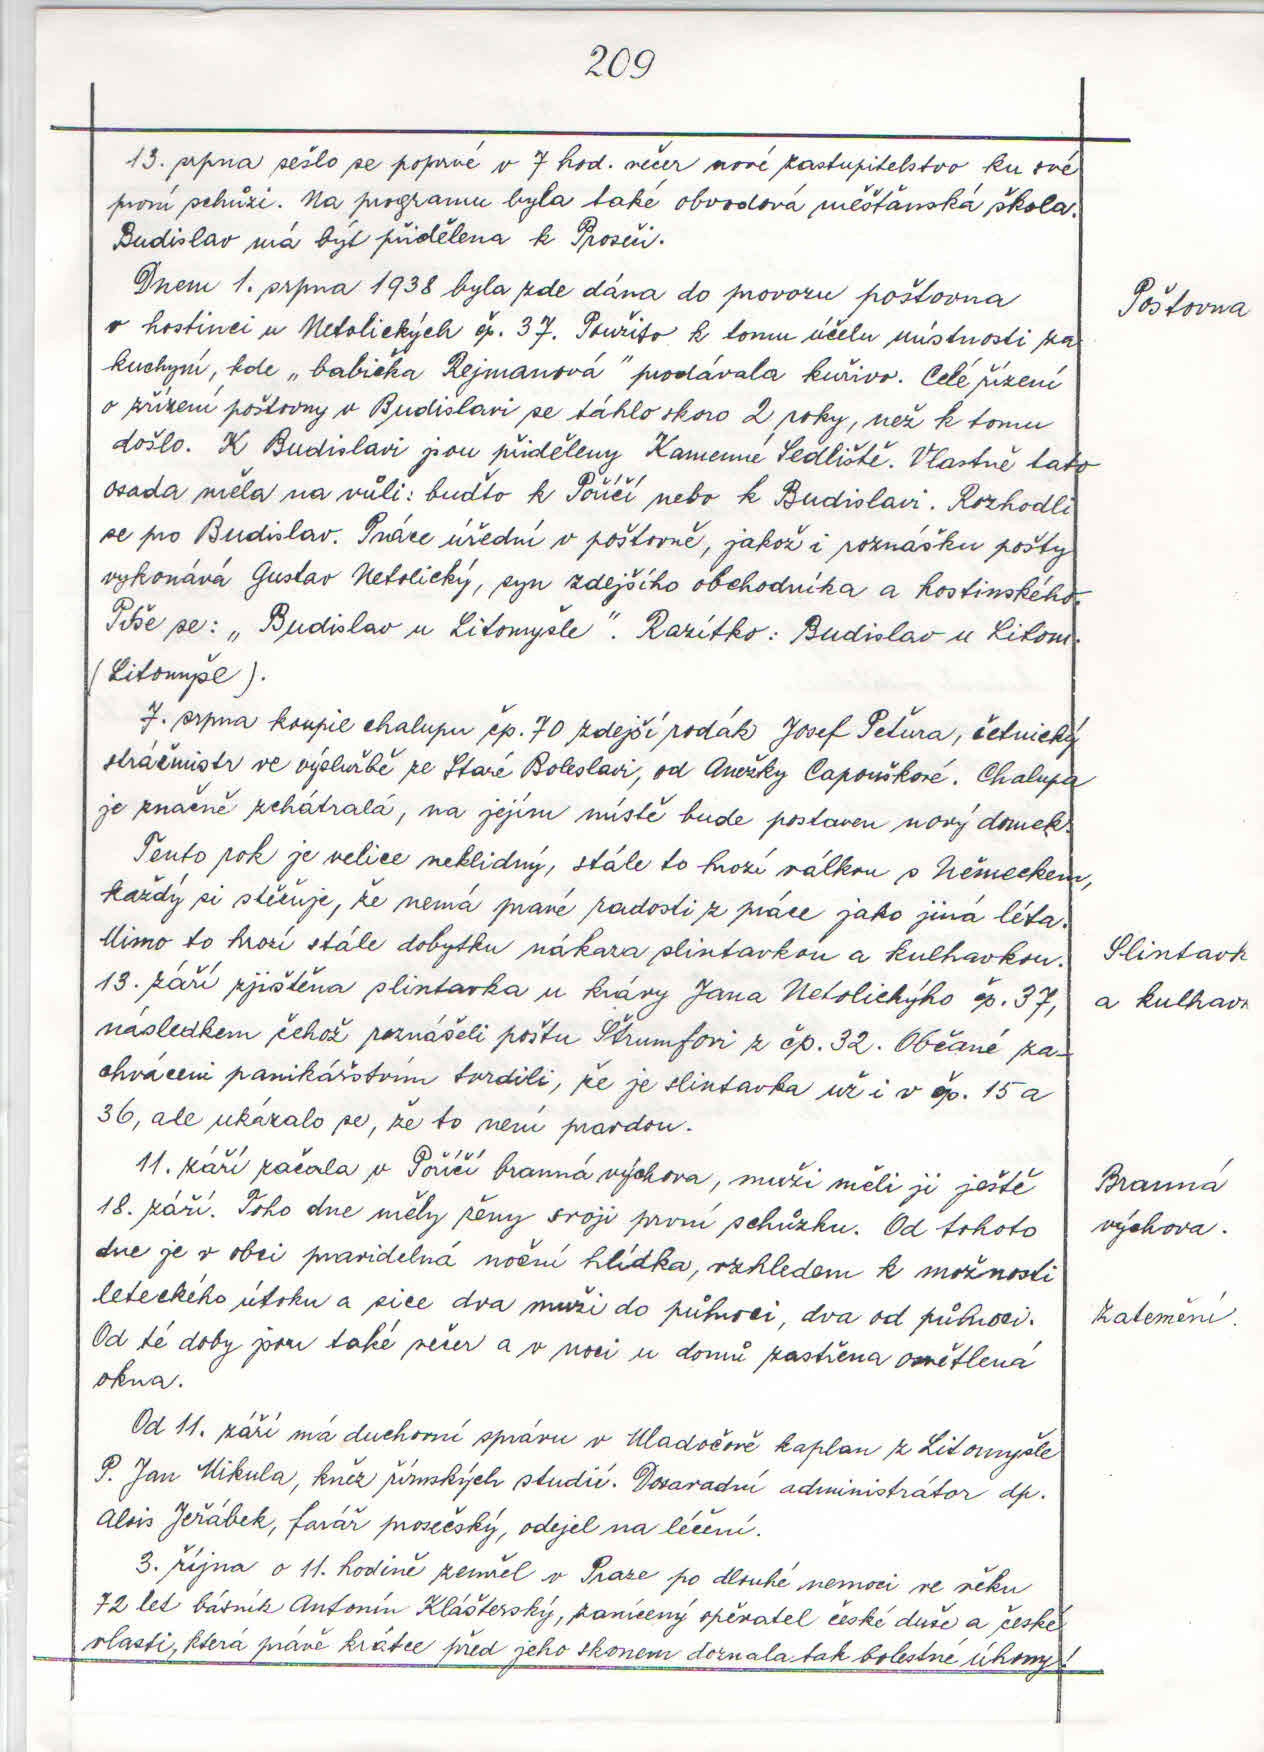 209
13. srpna sešlo se poprvé v 7 hod. večer nové zastupitelstvo ku své
první schůzi. Na programu byla také obvodová měšťanská škola.
Budislav má být přidělena k Proseči.
Dnem 1. srpna 1938 byla zde dána do provozu poštovna
Poštovna
v hostinci u Netolických čp. 37. Použito k tomu účelu místnosti za
kuchyní, kde „babička Rejmanová" prodávala kuřivo. Celé řízení
o zřízení poštovny v Budislavi se táhlo skoro 2 roky, než k tomu
došlo. K Budislavi jsou přiděleny Kamenné Sedliště. Vlastně tato
osada měla na vůli: buďto k Poříčí nebo k Budislavi. Rozhodli
se pro Budislav. Práce úřední v poštovně, jakož i roznášku pošty
vykonává Gustav Netolický, syn zdejšího obchodníka a hostinského.
Píše se: „Budislav u Litomyšle". Razítko: Budislav u Litom.
(Litomyšle).
7. srpna koupil chalupu čp. 70 zdejší rodák Josef Petůra, četnický
strážmistr ve výslužbě ze Staré Boleslavi, od Anežky Capouškové. Chalupa
je značně zchátralá, na jejím místě bude postaven nový domek.
Tento rok je velice neklidný, stále to hrozí válkou s Německem,
každý si stěžuje, že nemá pravé radosti z práce jako jiná léta.
Mimo to hrozí stále dobytku nákaza slintavkou a kulhavkou.
Slintavk
13. září zjištěna slintavka u krávy Jana Netolického čp. 37,
a kulhav
následkem čehož roznášeli poštu Štrumfovi z čp. 32. Občané za-
chváceni panikářstvím tvrdili, že je slintavka už i v čp. 15 a
36, ale ukázalo se, že to není pravdou.
11. září začala v Poříčí branná výchova, muži měli ji ještě
Branná
18. září. Toho dne měly ženy svoji první schůzku. Od tohoto
výchova.
dne je v obci pravidelná noční hlídka, vzhledem k možnosti
leteckého útoku a sice dva muži do půlnoci, dva od půlnoci.
Zatemění.
Od té doby jsou také večer a v noci u domů zastřena osvětlená
okna.
Od 11. září má duchovní správu v Mladočově kaplan z Litomyšle
P. Jan Mikula, kněz římských studií. Dosavadní administrátor dp.
Alois Jeřábek, farář prosečský, odejel na léčení.
3. října o 11. hodině zemřel v Praze po dlouhé nemoci ve věku
72 let básník Antonín Klášterský, zanícený opěvatel české duše a české
vlasti, která právě krátce před jeho skonem doznala tak bolestné úhony!